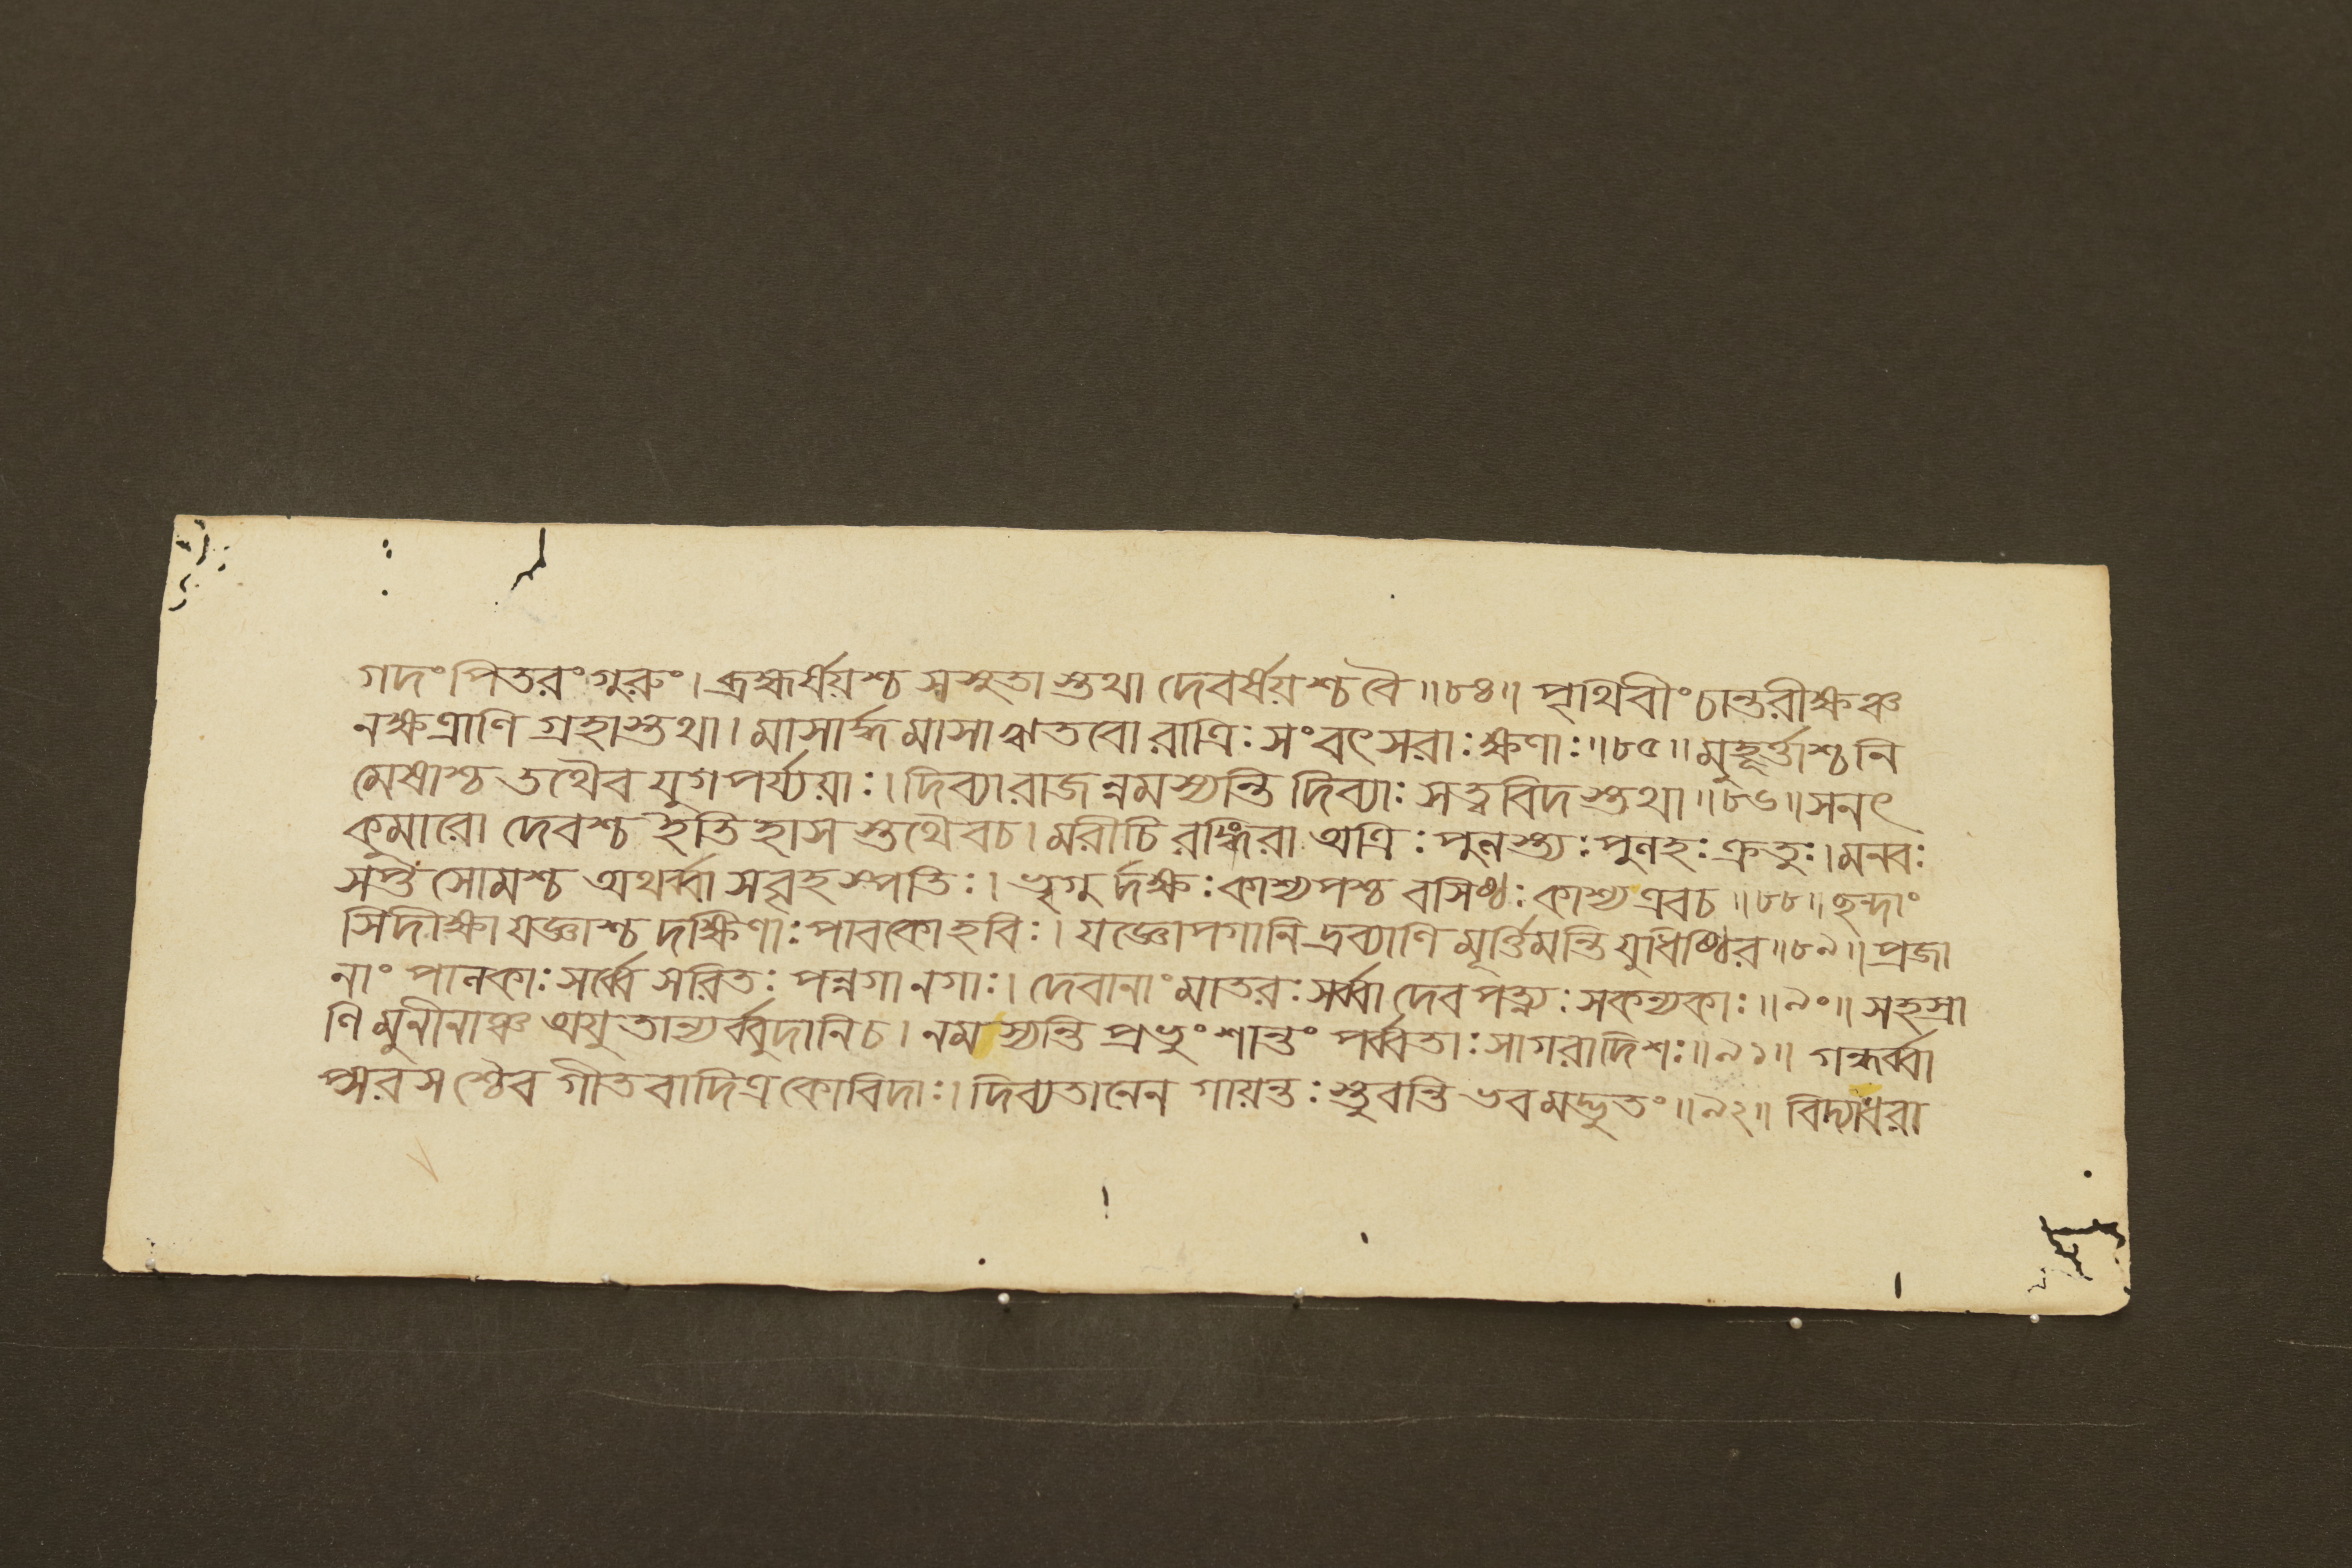 গদং পিতরং গুরুং। ব্রহ্মর্ষয়শ্চ সসুতাস্তথা দেবর্ষয়শ্চ বৈ॥৮৪॥ পৃথিবীং চান্তরীক্ষঞ্চ
নক্ষত্রাণি গ্রহাস্তথা। মাসার্দ্ধমাসা ঋতবো রাত্রিঃ সংবৎসরাঃ ক্ষণাঃ॥৮৫॥ মুহূর্ত্তাশ্চ নি
মেষাশ্চ তথৈব যুগপর্য্যয়াঃ। দিব্যা রাজন্নমস্যন্তি দিব্যাঃ সত্ত্ববিদস্তথা॥৮৬॥ সনৎ
কুমারো দেবশ্চ ইতিহাসস্তথৈবচ। মরীচিরঙ্গিরা অত্রিঃ পুলস্ত্যঃ পুলহঃ ক্রতুঃ। মনবঃ
সপ্ত সোমশ্চ অথর্ব্বা সবৃহস্পতিঃ। ভৃগুর্দক্ষঃ কাশ্যপশ্চ বসিষ্ঠঃ কাশ্য এবচ॥৮৮॥ ছন্দাং
সি দীক্ষা যজ্ঞাশ্চ দক্ষিণাঃ পাবকো হবিঃ। যজ্ঞোপগানি দ্রব্যাণি মূর্ত্তিমন্তি যুধিষ্ঠির॥৮৯॥ প্রজা
নাং পালকাঃ সর্ব্বে সরিতঃ পন্নগা নগাঃ। দেবানাং মাতরঃ সর্ব্বা দেবপত্ন্যঃ সকন্যকাঃ॥৯০॥ সহস্রা
ণি মুনীনাঞ্চ অযুতান্যর্ব্বুদানিচ। নমস্যন্তি প্রভুং শান্তং পর্ব্বতাঃ সাগরা দিশঃ॥৯১॥ গন্ধর্ব্বা
প্সরসশ্চৈব গীতবাদিত্রকোবিদাঃ। দিব্যতালেন গায়ন্তঃ স্তুবন্তি ভবমদ্ভুতং॥৯২॥ বিদ্যাধরা